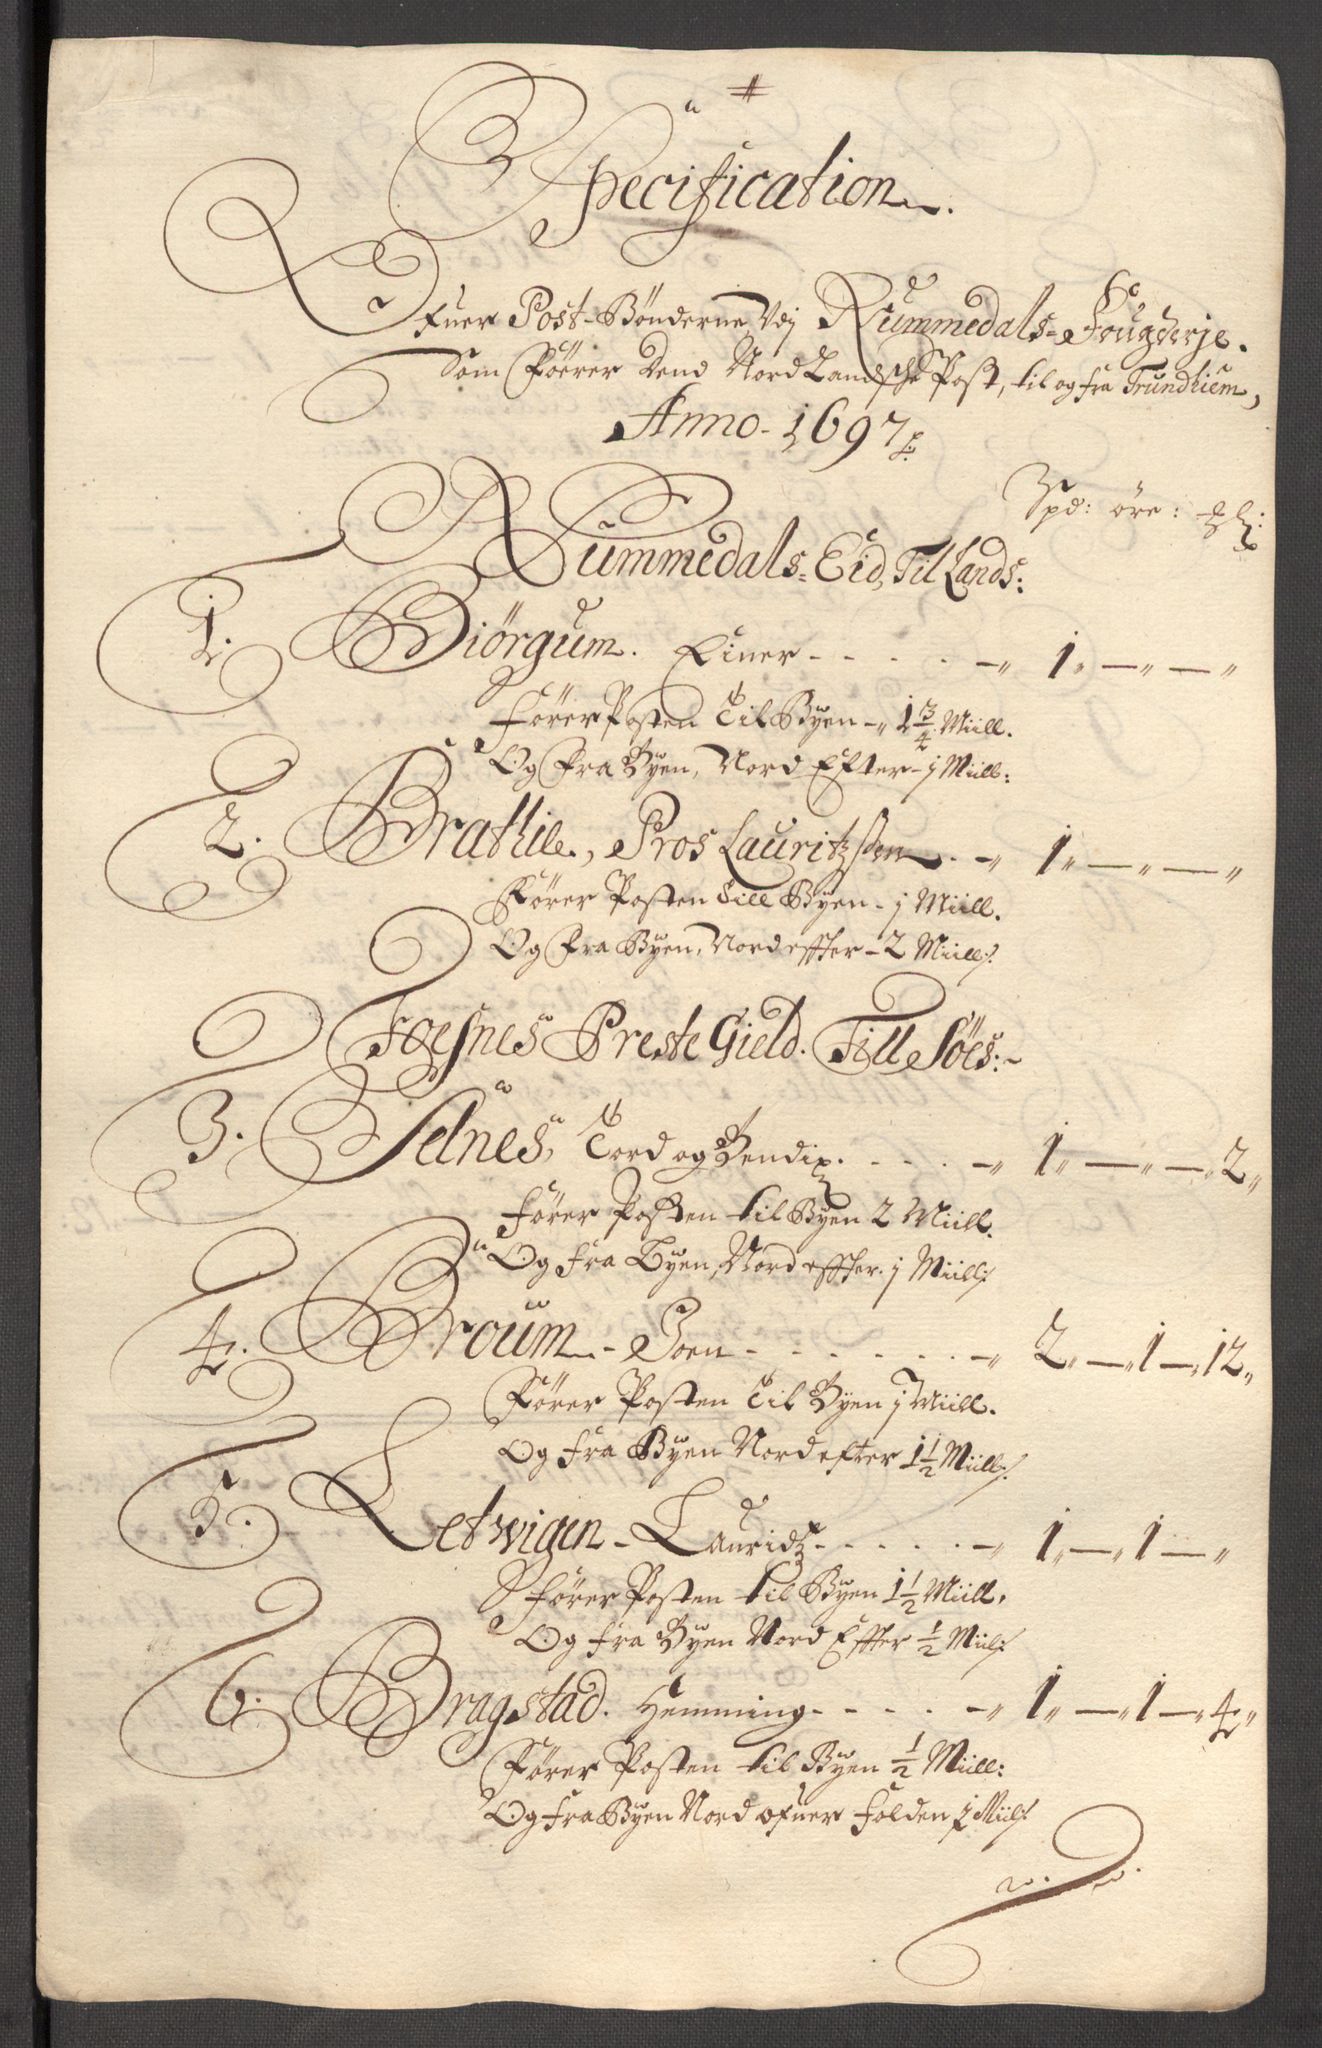 Specification.
Ofuer Post-Bønderne Udj Nummedals-Fougderje.
Som Føerer Dend Nord Landsche Post, til og fra Trundhiem,
Anno. 1697
Spd: øre:
Nummedals-Eid, Til Lands:
1. Biörgum. Einer - - - - -„ 1„ — „ — „
fører Posten Til Byen -„ 1 3/4 Miill.
Og Fra Byen, Nord Efter - j Miill:
2. Brathlie, Pros Lauritzsen - -„ 1„ — „ — „
Fører Posten till Byen - j Miill.
Og Fra Byen, Nord effter - 2 Miill:
Foesnes Preste Gield. Till Söes:-
3. Selnes, Tord og Bendix. - - - -„ 1„ — „ — „ 2„
fører Posten til Byen 2 Miill.
Og fra Byen, Nord effter. j Miill:
4. Broum - Joen - - - - - - -„ 2„ — 1 — „ 12„
Fører Posten Til Byen j Miill.
Og fra Byen Nord efter 1 1/2 Miill:
5. Letwigen - Lauridz - - - - -„ 1„ — 1 — „
fører Posten til Byen 1 1/2 Miill,
Og fra Byen Nord Effter 1/2 Miil:
6. Bragstad. Hemming - - - - -„ 1„ — 1 — „ 4„
Fører Posten til Byen 1/2 Miill:
Og fra Byen Nord ofuer Folden Miil: